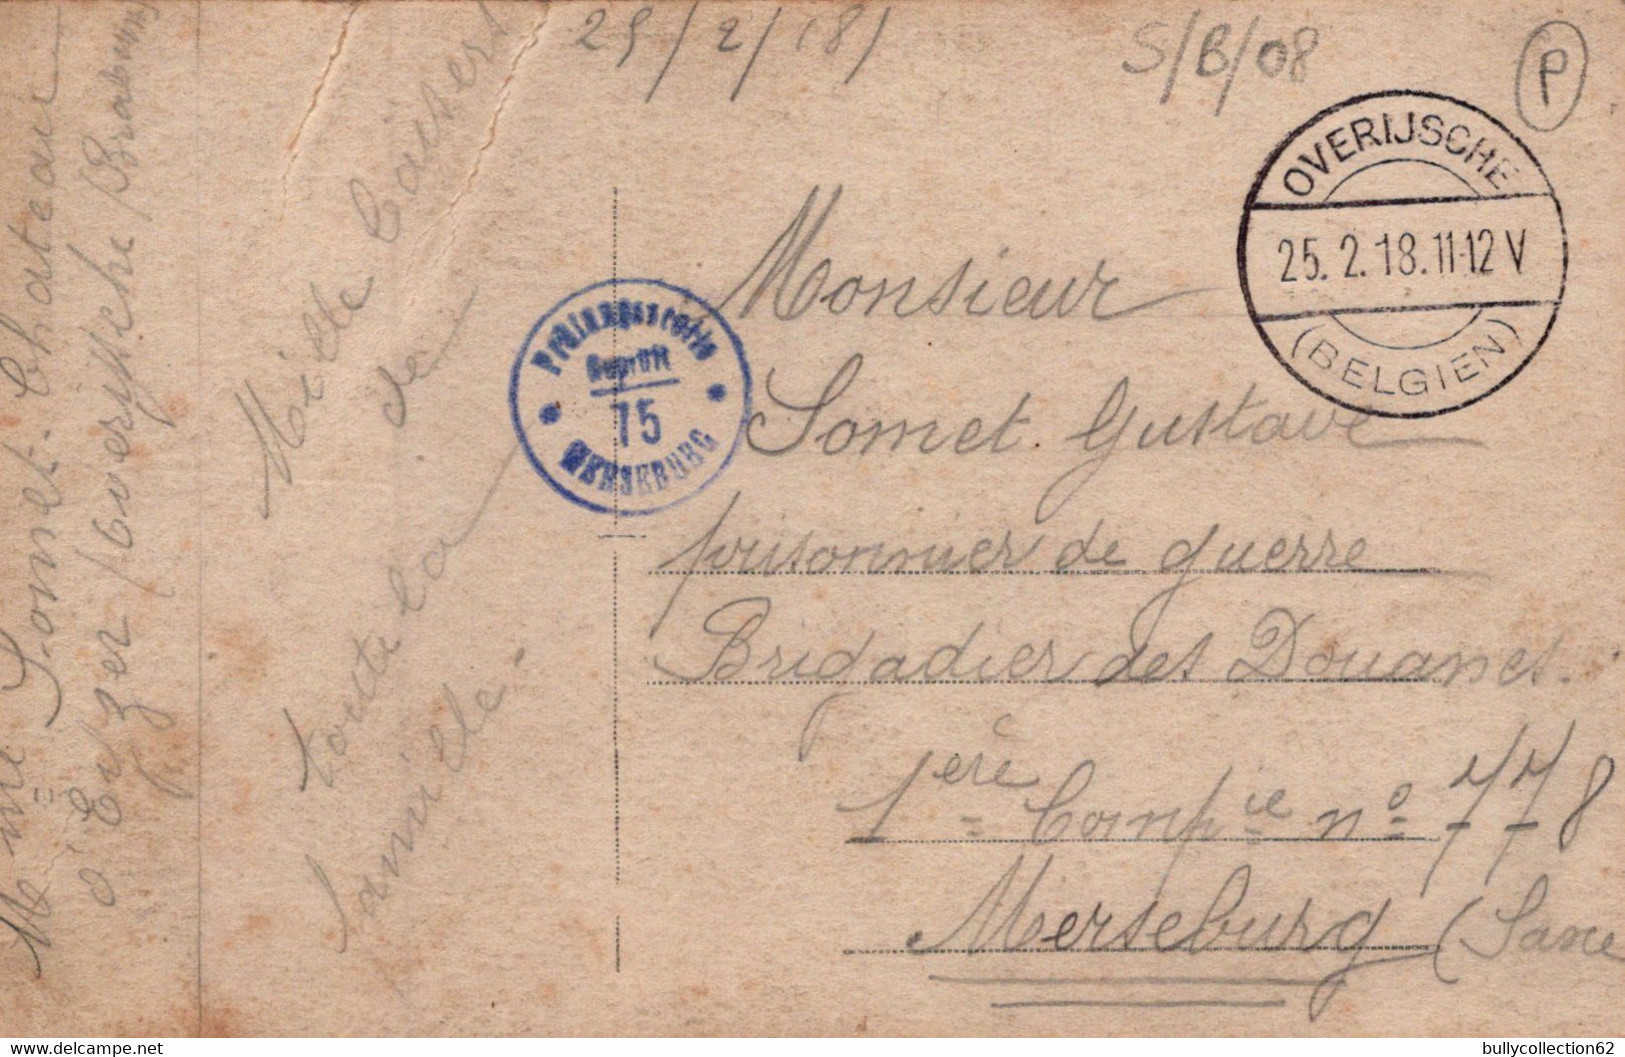 25/2/18/
S/B/08
P
OVERIJSCHE
25.2.18.11-12 V
(BELGIEN)
Mme Somet. Chateau
d'Eyzer / Overyssche Brabant
Mille baisers
de
toute la
famille.
Geprüft
75
MERSEBURG
Monsieur
Somet Gustave
prisonnier de guerre
Brigadier des Douanes.
1ère Compie no 778
Merseburg (Saxe
bullycollection62